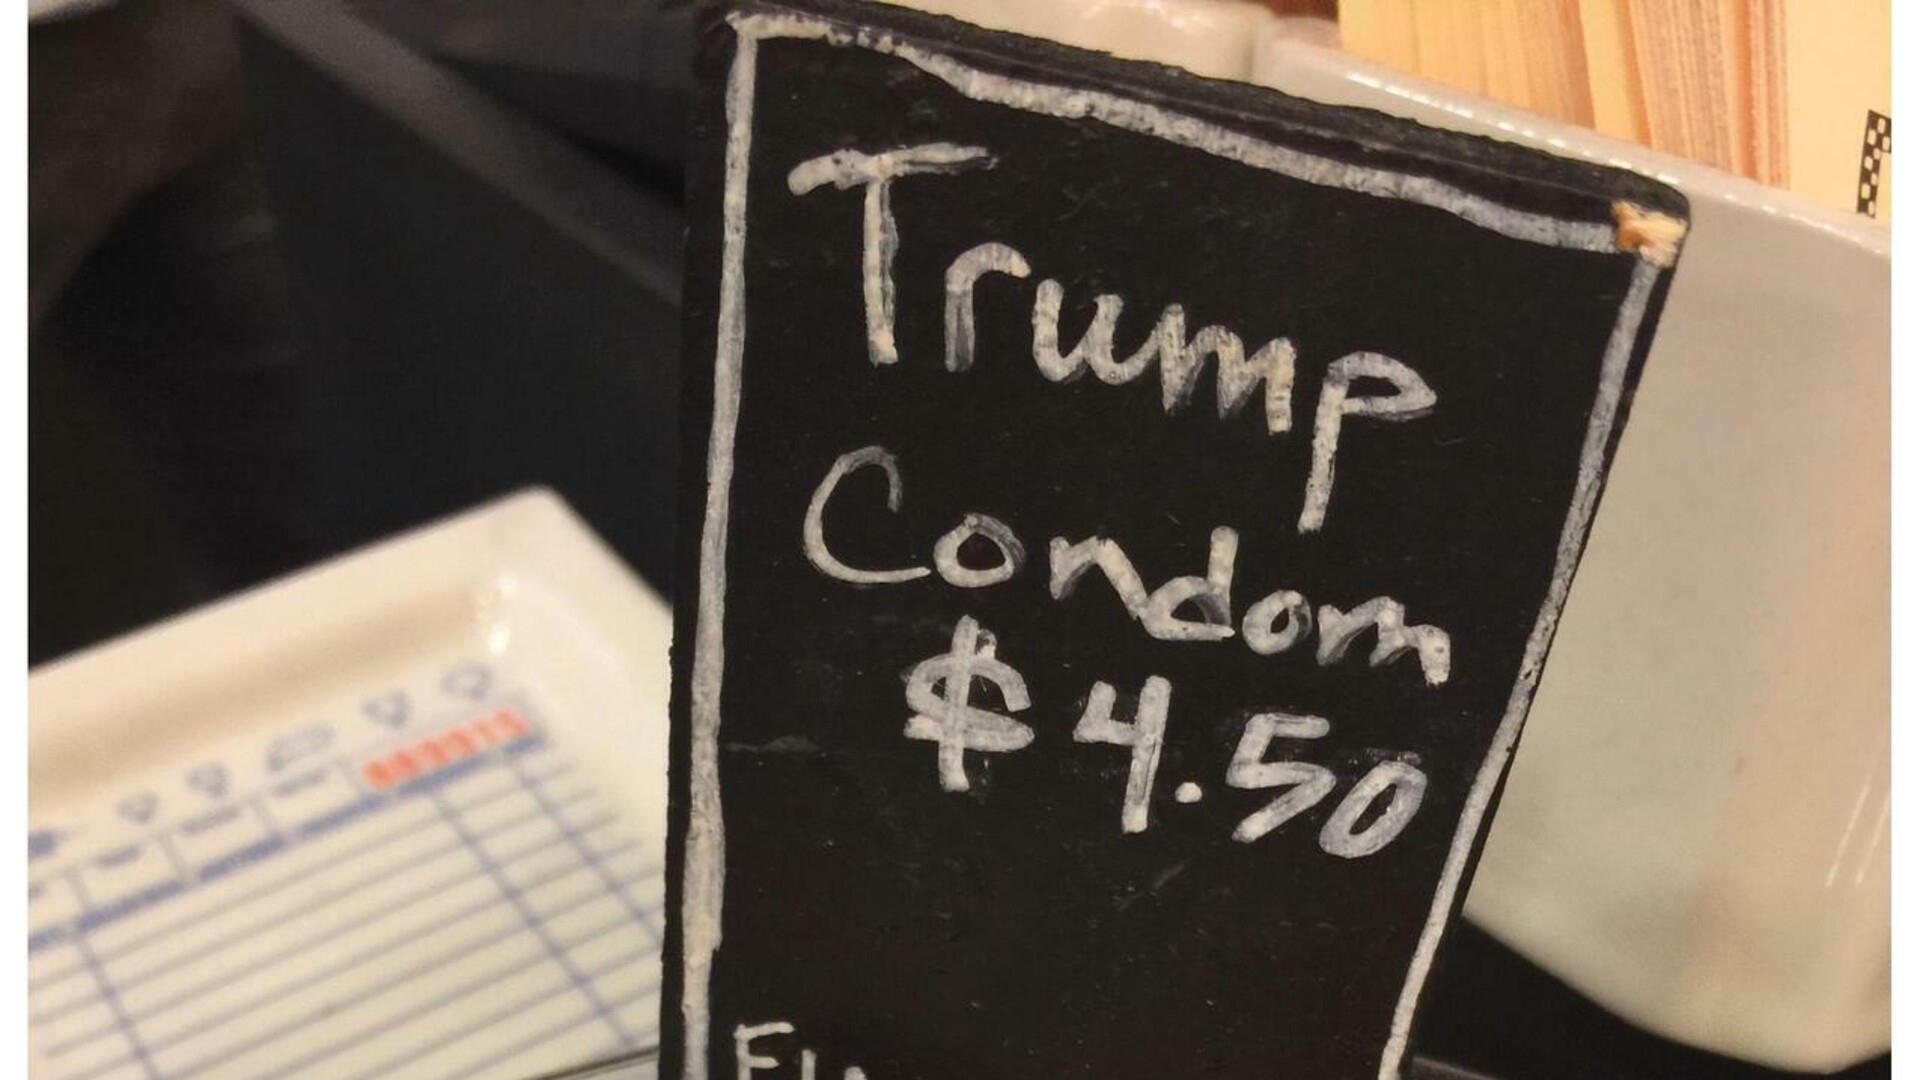 Trump
Condom
$4.50